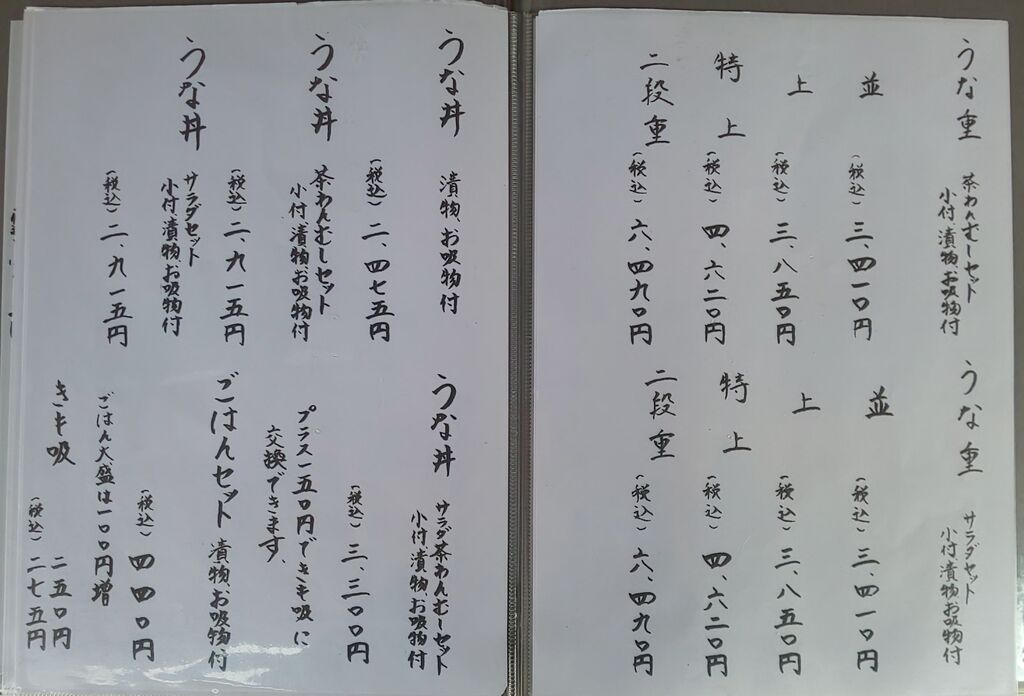 うな重
茶わんむしセット
小付、漬物、お吸物付
並
(税込)三、四一〇円
上
(税込)三、八五〇円
特上
(税込)四、六二〇円
二段重
(税込)六、四九〇円
うな重
サラダセット
小付、漬物、お吸物付
並
(税込)三、四一〇円
上
(税込)三、八五〇円
特上
(税込)四、六二〇円
二段重
(税込)六、四九〇円
うな丼
漬物、お吸物付
(税込)二、四七五円
うな丼
茶わんむしセット
小付、漬物、お吸物付
(税込)二、九一五円
うな丼
サラダセット
小付、漬物、お吸物付
(税込)二、九一五円
うな丼
サラダ茶わんむしセット
小付、漬物、お吸物付
(税込)三、三〇〇円
プラス一五〇円できも吸に
交換できます、
ごはんセット
漬物、お吸物付
(税込)四四〇円
ごはん大盛は一〇〇円増
きも吸
二五〇円
(税込)二七五円